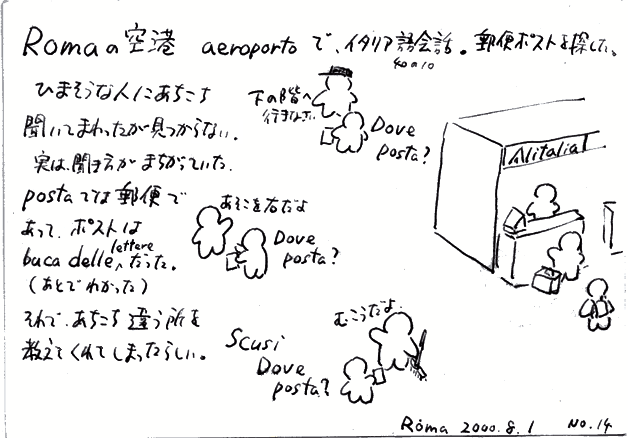 Romaの空港 aeroportoで、イタリア語会話。郵便ポストを探した。
ひまそうな人にあちこち
聞いてまわったが見つからない。
実は、聞き方がまちがっていた。
postaでは郵便で
あって、ポストは
buca delle lettereだった。
(あとでわかった)
それで、あちこち違う所を
教えてくれてしまったらしい。
下の階へ
行きなさい
Dove
posta?
あそこを右だよ
Dove
posta?
むこうだよ
Scusi
Dove
posta?
Alitalia
Roma 2000.8.1 NO.14